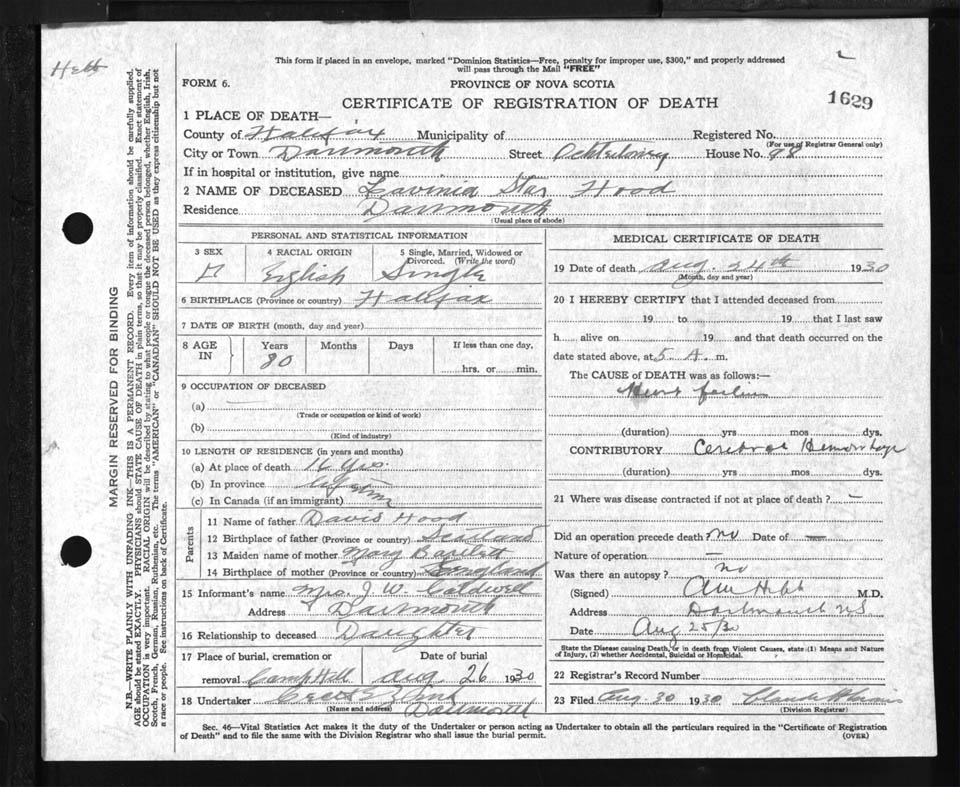 Hebb
This form if placed in an envelope, marked "Dominion Statistics—Free, penalty for improper use, $300," and properly addressed
will pass through the Mail "FREE"
FORM 6.
PROVINCE OF NOVA SCOTIA
CERTIFICATE OF REGISTRATION OF DEATH
1629
1 PLACE OF DEATH—
County of Halifax Municipality of Registered No.
(For use of Registrar General only)
City or Town Dartmouth Street Ochterloney House No. 98
If in hospital or institution, give name
2 NAME OF DECEASED Lavinia Star Hood
Residence Dartmouth
(Usual place of abode)
PERSONAL AND STATISTICAL INFORMATION
3 SEX 4 RACIAL ORIGIN 5 Single, Married, Widowed or
Divorced. (Write the word)
English Single
6 BIRTHPLACE (Province or country) Halifax
7 DATE OF BIRTH (month, day and year)
8 AGE IN Years Months Days If less than one day,
80 hrs. or min.
9 OCCUPATION OF DECEASED
(a) —
(Trade or occupation or kind of work)
(b)
(Kind of industry)
10 LENGTH OF RESIDENCE (in years and months)
(a) At place of death 16 yrs.
(b) In province Lifetime
(c) In Canada (if an immigrant)
Parents
11 Name of father Davis Hood
12 Birthplace of father (Province or country) Scotland
13 Maiden name of mother Mary Bartlett
14 Birthplace of mother (Province or country) England
15 Informant's name Mrs. J. W. Caldwell
Address Dartmouth
16 Relationship to deceased Daughter
17 Place of burial, cremation or Date of burial
removal Camp Hill Aug 26 1930
18 Undertaker Dartmouth
(Name and address)
MEDICAL CERTIFICATE OF DEATH
19 Date of death Aug. 24th 1930
(Month, day and year)
20 I HEREBY CERTIFY that I attended deceased from
19 to 19 that I last saw
h alive on 19 and that death occurred on the
date stated above, at 5 A. m.
The CAUSE of DEATH was as follows:—
Heart failure
(duration) yrs mos dys.
CONTRIBUTORY Cerebral Hemorrhage
(duration) yrs. mos. dys.
21 Where was disease contracted if not at place of death? —
Did an operation precede death? no Date of —
Nature of operation —
Was there an autopsy? no
(Signed) Hebb M.D.
Address Dartmouth N.S.
Date Aug 25/30
State the Disease causing Death, or in death from Violent Causes, state (1) Means and Nature
of Injury, (2) whether Accidental, Suicidal or Homicidal.
22 Registrar's Record Number
23 Filed Aug. 30 1930
(Division Registrar)
Sec. 46—Vital Statistics Act makes it the duty of the Undertaker or person acting as Undertaker to obtain all the particulars required in the "Certificate of Registration
of Death" and to file the same with the Division Registrar who shall issue the burial permit.
(OVER)
MARGIN RESERVED FOR BINDING
N.B.—WRITE PLAINLY WITH UNFADING INK—THIS IS A PERMANENT RECORD. Every item of information should be carefully supplied.
AGE should be stated EXACTLY. PHYSICIANS should STATE CAUSE OF DEATH in plain terms, so that it may be properly classified. Exact statement of
OCCUPATION is very important. RACIAL ORIGIN will be described by stating to what people or tongue the deceased person belonged, whether English, Irish,
Scotch, French, German, Russian, Ruthenian, etc. The terms "AMERICAN" or "CANADIAN" SHOULD NOT BE USED as they express citizenship but not
a race or people. See instructions on back of Certificate.